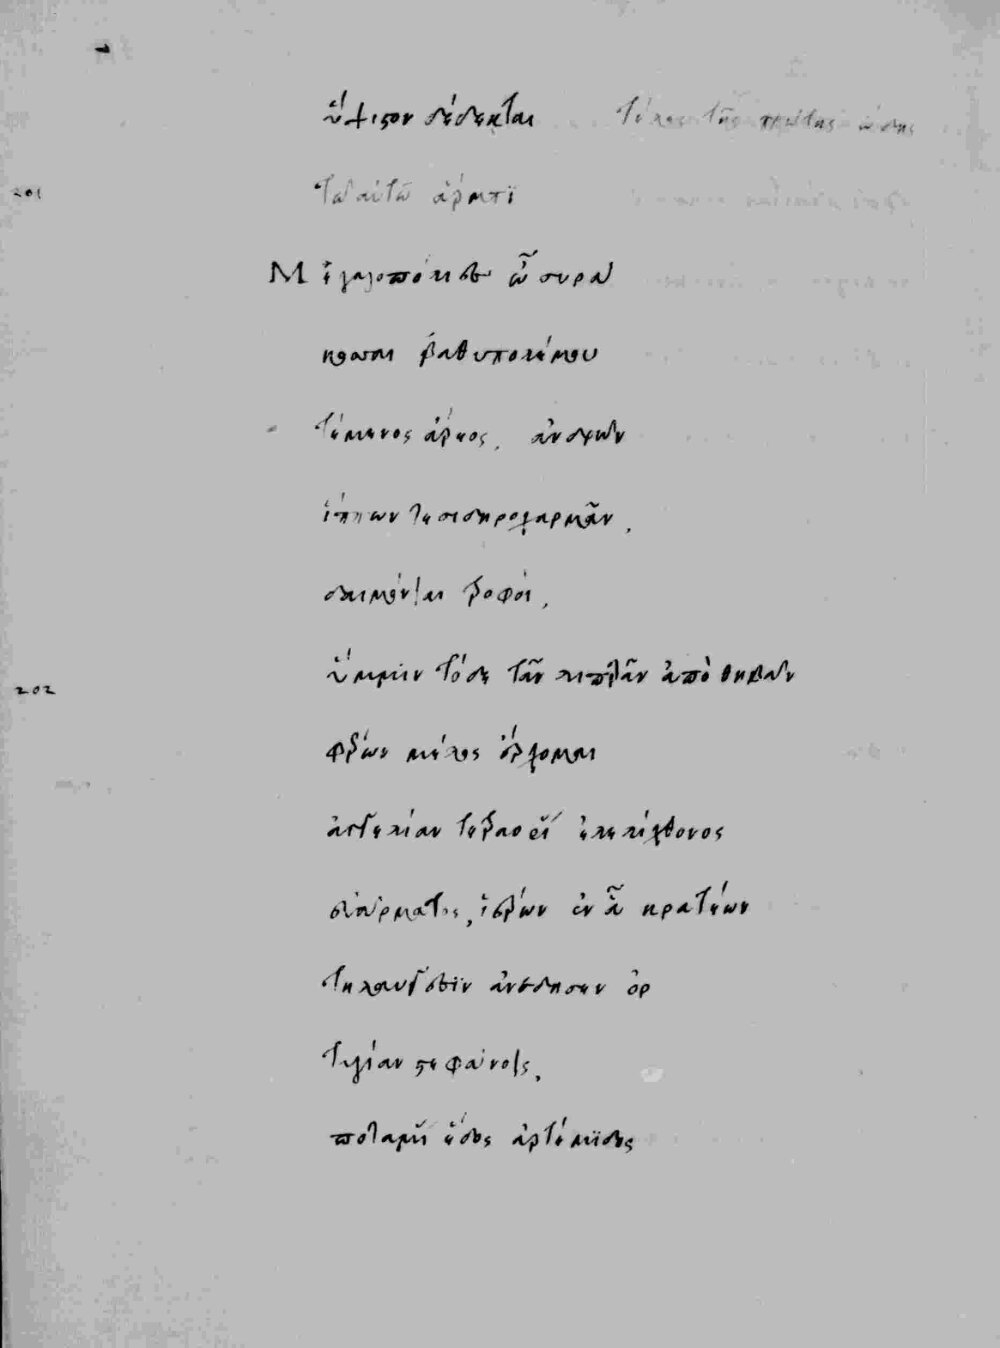 ὕψιστον δέδεκται τέλος τῆς πρώτης ᾠδῆς
201
Τῶ αὐτῶ ἅρματι
Μεγαλοπόλιες ὦ συρά
κοσαι βαθυπολέμου
τέμενος ἄρεος. ἀνδρῶν
ἵππων τε σιδηροχαρμᾶν,
δαιμόνιαι τροφοὶ,
202
ὔμμιν τόδε τᾶν λιπαρᾶν ἀπὸ θηβᾶν
φέρων μέλος ἔρχομαι
ἀγγελίαν τετραορίας ἐλελίχθονος
εὐάρματος ἱέρων ἐν ᾇ κρατέων
τηλαυγέσιν ἀνέδησεν ὀρ
τυγίαν στεφάνοις.
ποταμίας ἕδος ἀρτέμιδος